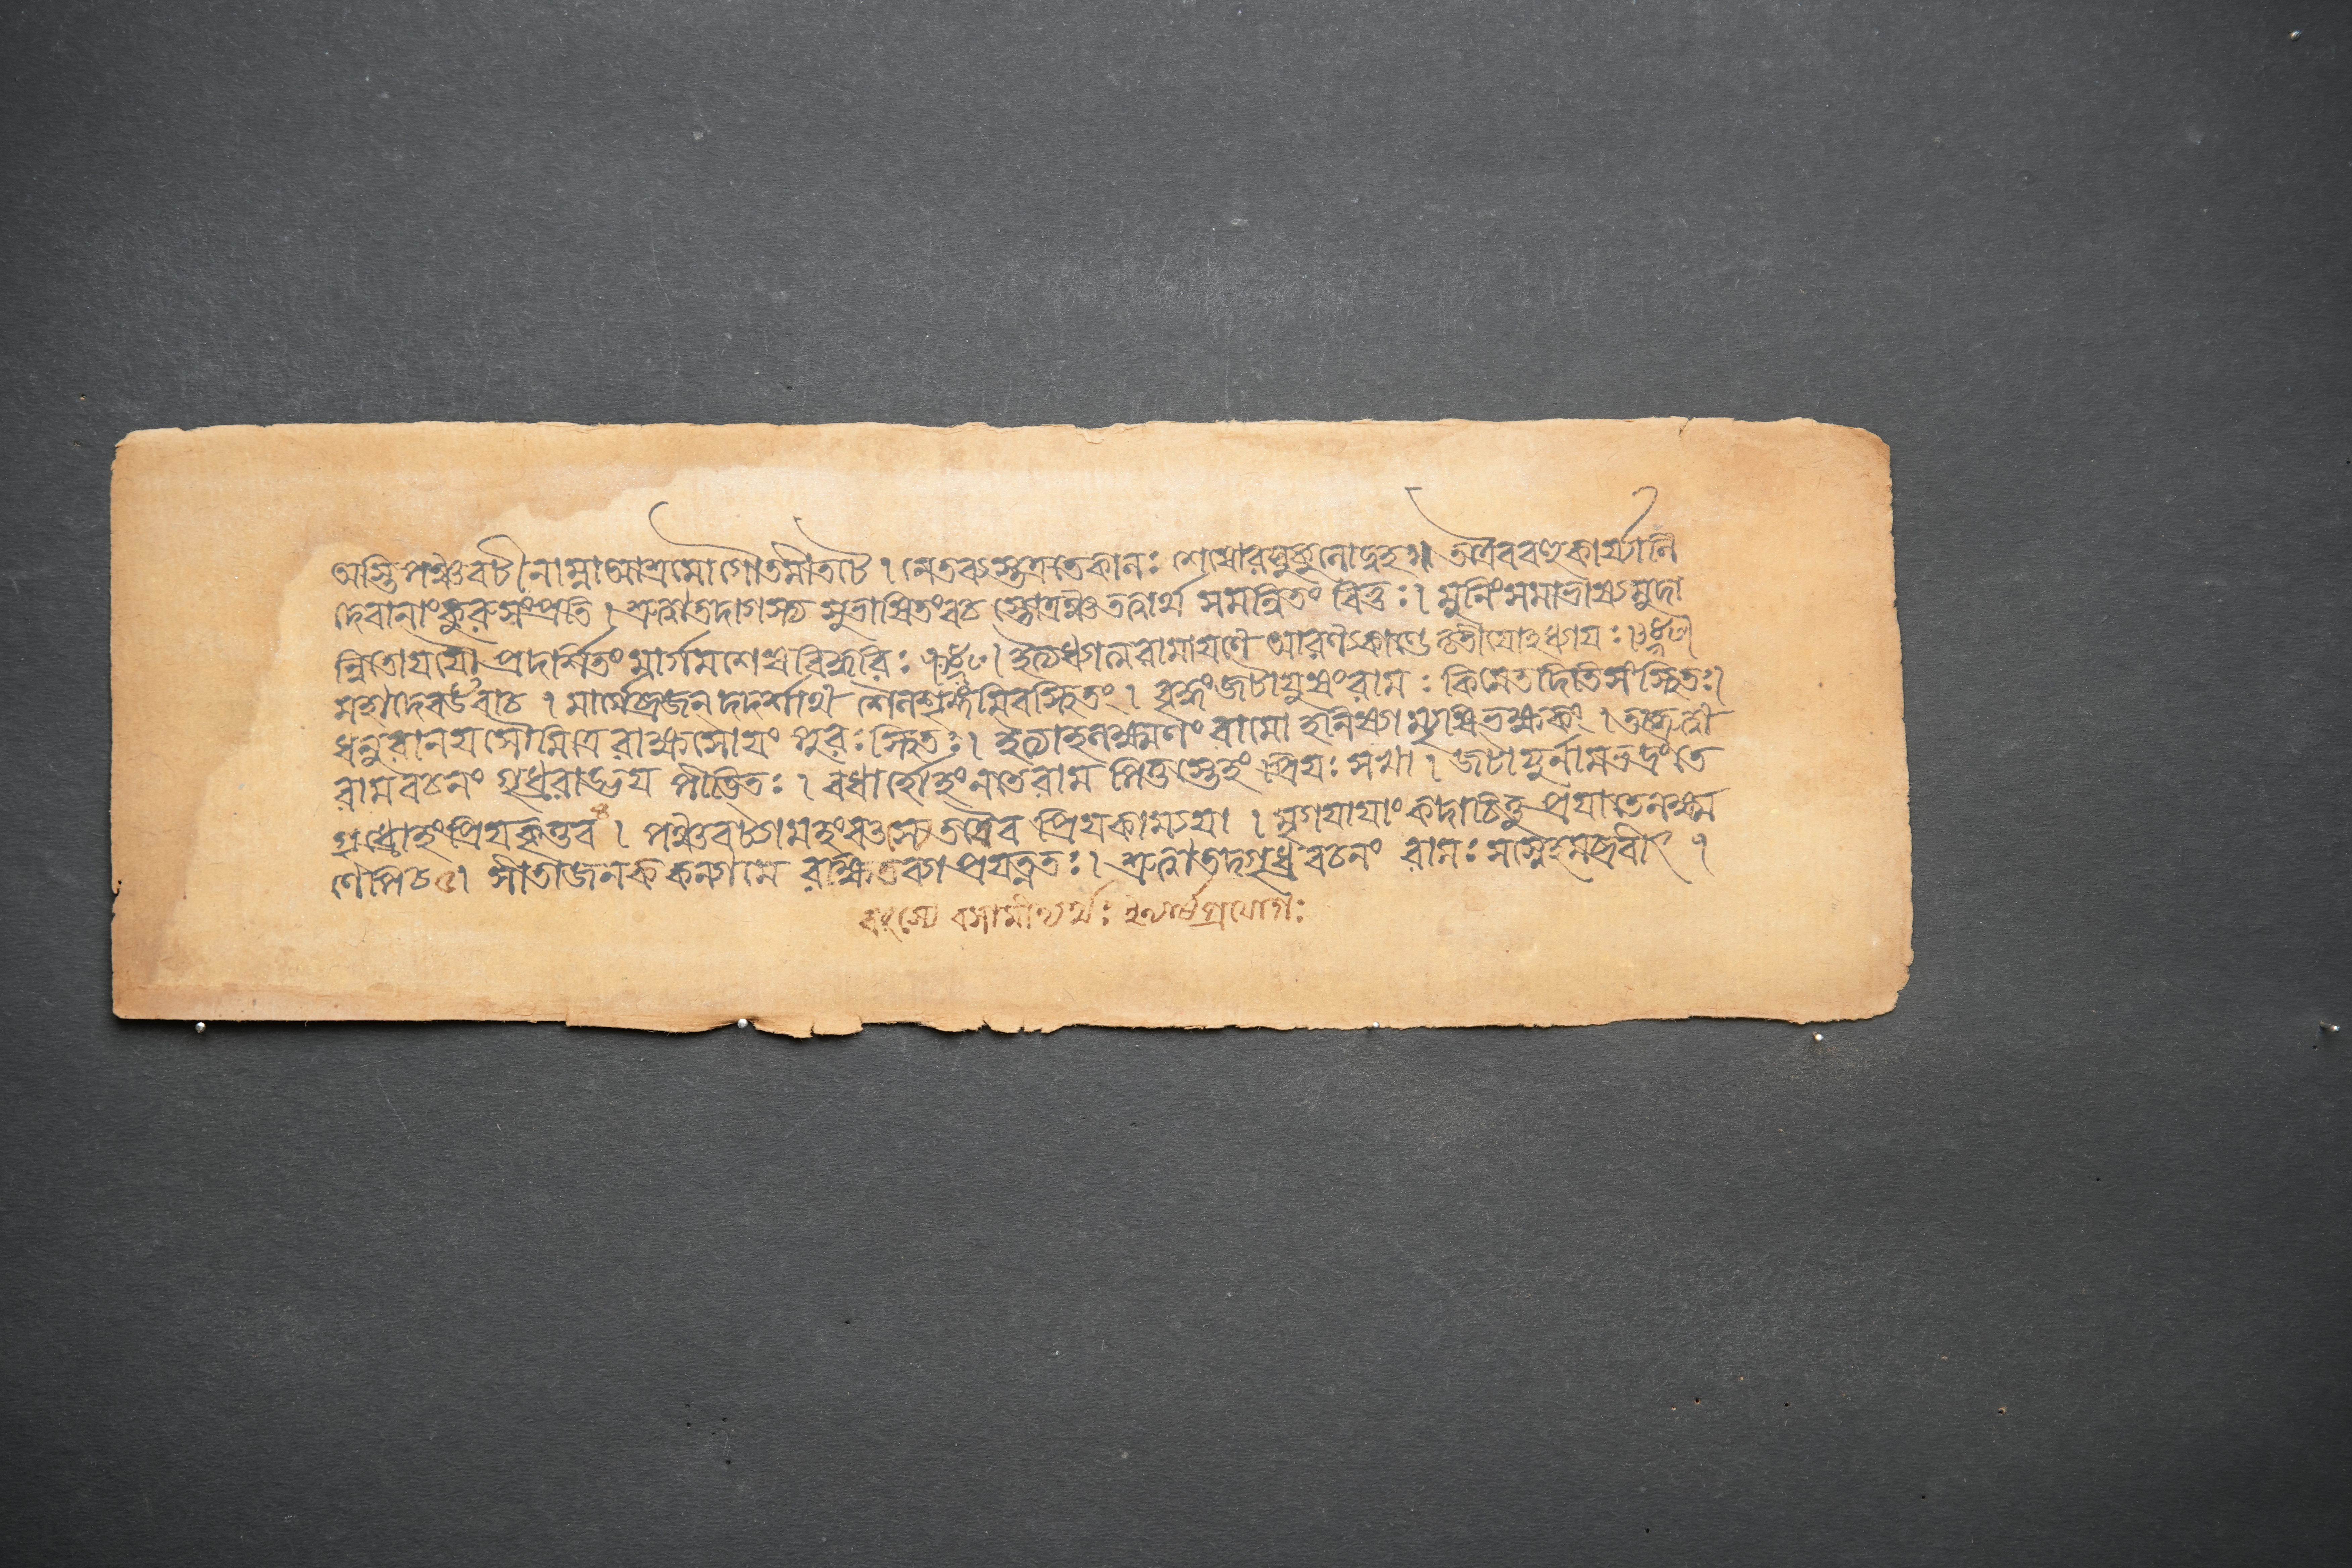 অস্তি পঞ্চবটী নাম্না আশ্রমো গৌতমীতটে । নেতব্যস্তত্র তে কালঃ শেষো রঘুকুলোদ্বহ ॥ তত্রৈব বহুকার্য্যাণি
দেবানাং কুরু সংপ্রতি । শ্রুত্বা তদাগস্ত্য সুভাষিতং বচ স্তোত্রঞ্চ তত্ত্বার্থ সমন্বিতং বিভুঃ । মুনিং সমাভাষ্য মুদা
ন্বিতো যযৌ প্রদর্শিতং মার্গমশেষবিদ্ধরিঃ । ইত্যধ্যাত্মরামায়ণে আরণ্যকাণ্ডে তৃতীয়োঽধ্যায়ঃ ।
মহাদেব উবাচ । মার্গে ব্রজন্ দদর্শাথ শৈলশৃঙ্গমিব স্থিতং । বৃদ্ধং জটায়ুষং রামঃ কিমেতদিতি বিস্মিতঃ ।
ধনুরানয় সৌমিত্রে রাক্ষসোয়ং পুরঃ স্থিতঃ । ইত্যাহ লক্ষ্মণং রামো হনিষ্যাম্যৃষিভক্ষকং । তচ্ছ্রুত্বা
রামবচনং গৃধ্ররাড্ভয় পীডিতঃ । বধার্হোহং ন তে রাম পিতুস্তেহং প্রিয়ঃ সখা । জটায়ুর্নাম ভদ্রং তে
গৃধ্রোহং প্রিয়কৃত্তব । পঞ্চবট্যামহং বৎস্যে তবৈব প্রিয়কাম্যয়া । মৃগয়ায়াং কদাচিত্তু প্রয়াতে লক্ষ্ম
ণেপি চ । সীতা জনককন্যা মে রক্ষিতব্যা প্রযত্নতঃ । শ্রুত্বা তদ্গৃধ্রবচনং রামঃ সস্নেহমব্রবীৎ ।
বৎস্যে বসামীত্যর্থঃ প্রয়োগঃ